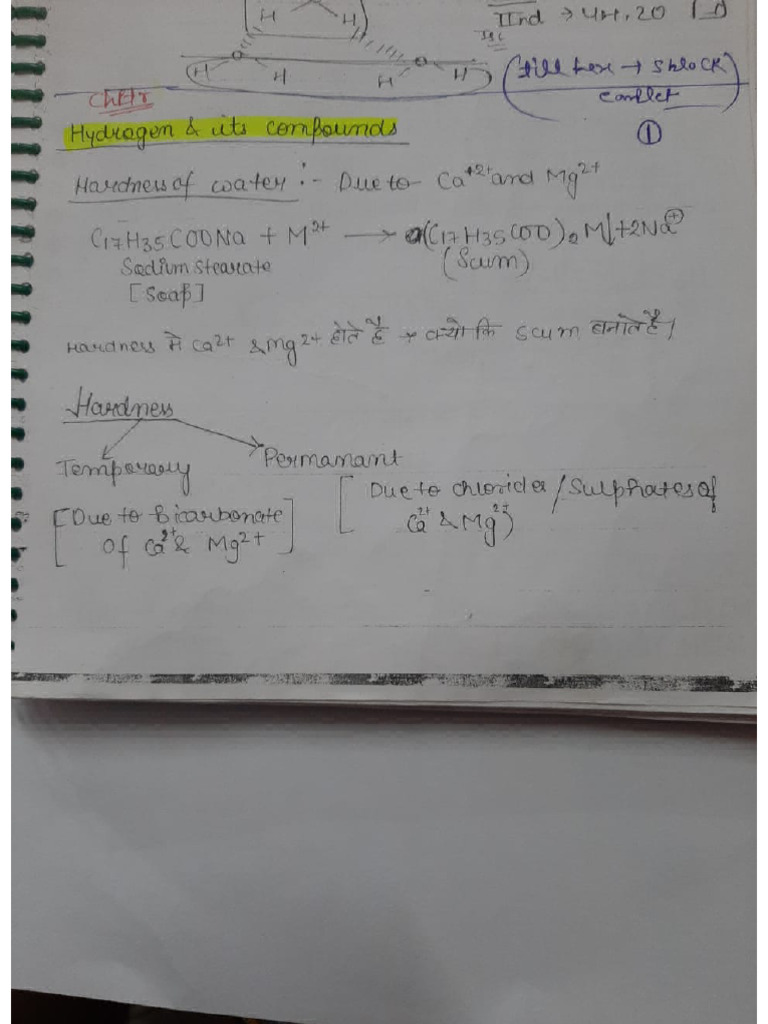 H H
IInd → 4H, 20
H H H H
(till hex → shlock
Hydrogen & its compounds
①
Hardness of water :- Due to Ca+2+ and Mg2+
C17H35COONa + M2+ → (C17H35COO)2M↓+2Na⊕
Sodium stearate (Scum)
[Soap]
Hardness मे Ca2+ & Mg2+ होते है क्यो कि scum बनाते है।
Hardness
Temporary Permanant
[Due to bicarbonate [Due to chlorides/Sulphates of
Of Ca2+ & Mg2+] Ca2+ & Mg2+)